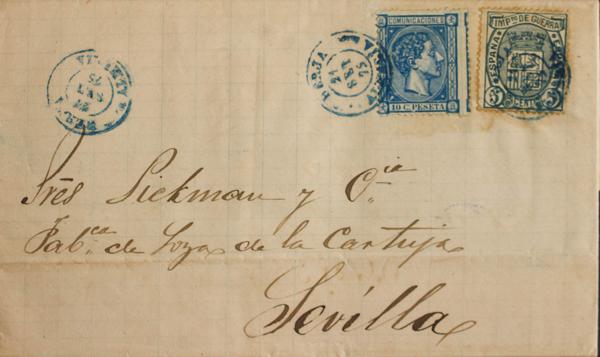 COMUNICACIONES
10 C. PESETA
IMPTO DE GUERRA
ESPAÑA
5 CENT 5
BERJA
75
Sres Pickman y Cia
Fabca de Loza de la Cartuja
Sevilla